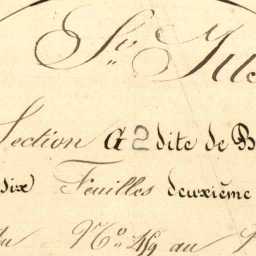 Section G 2 dite de B
dix Feuilles deuxième
du N.° 49 au